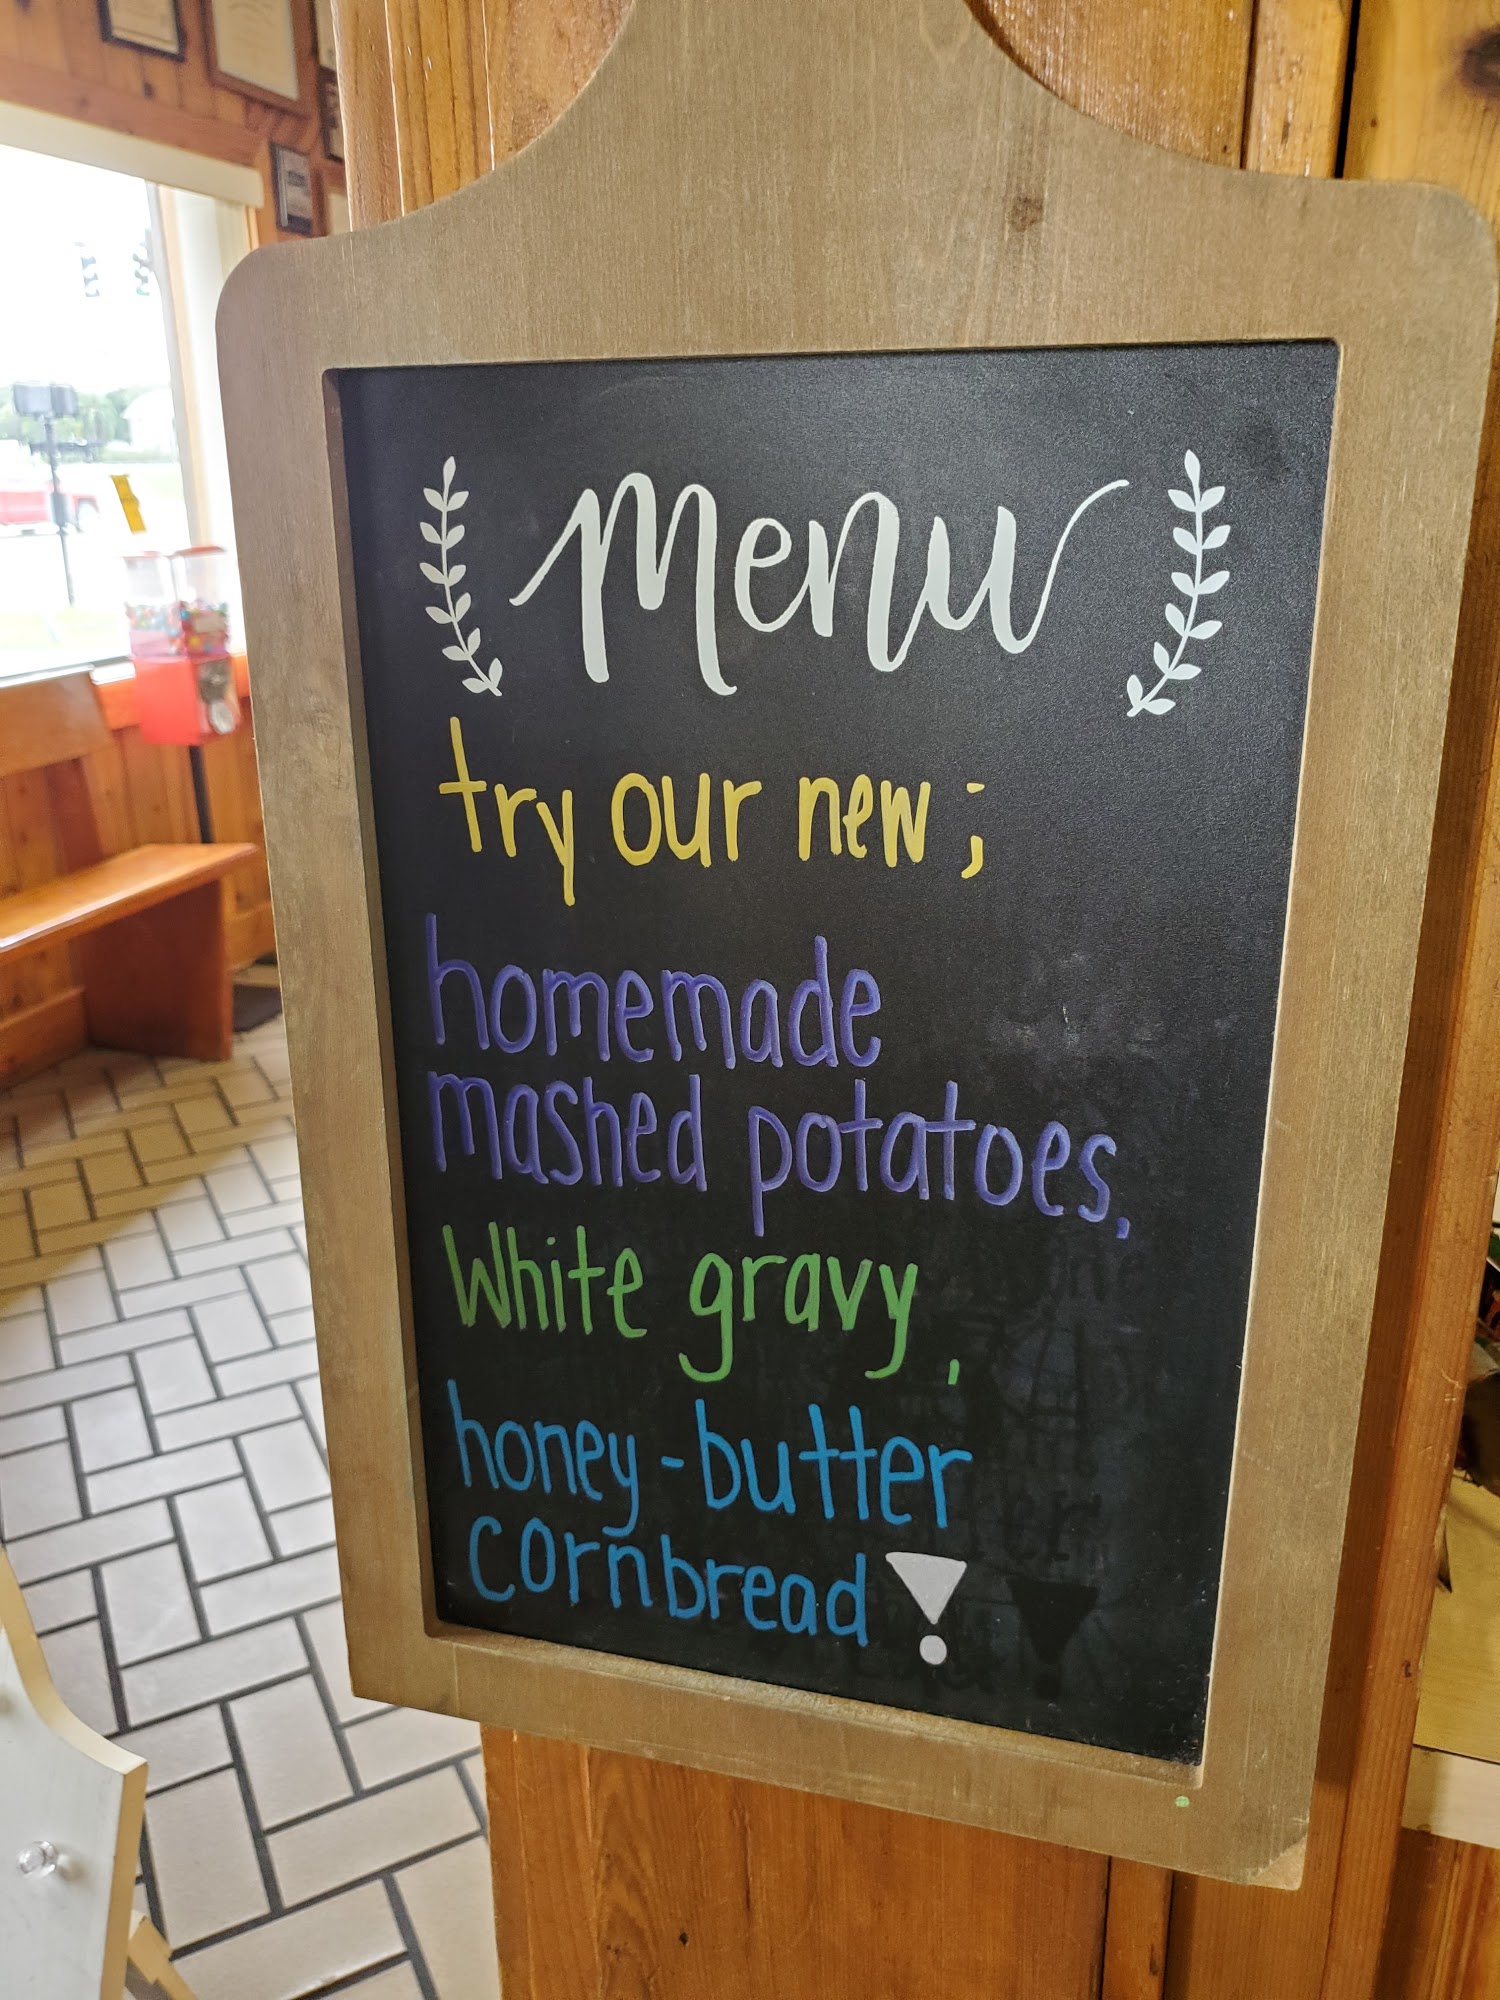 menu
try our new ;
homemade
mashed potatoes,
White gravy,
honey-butter
cornbread!